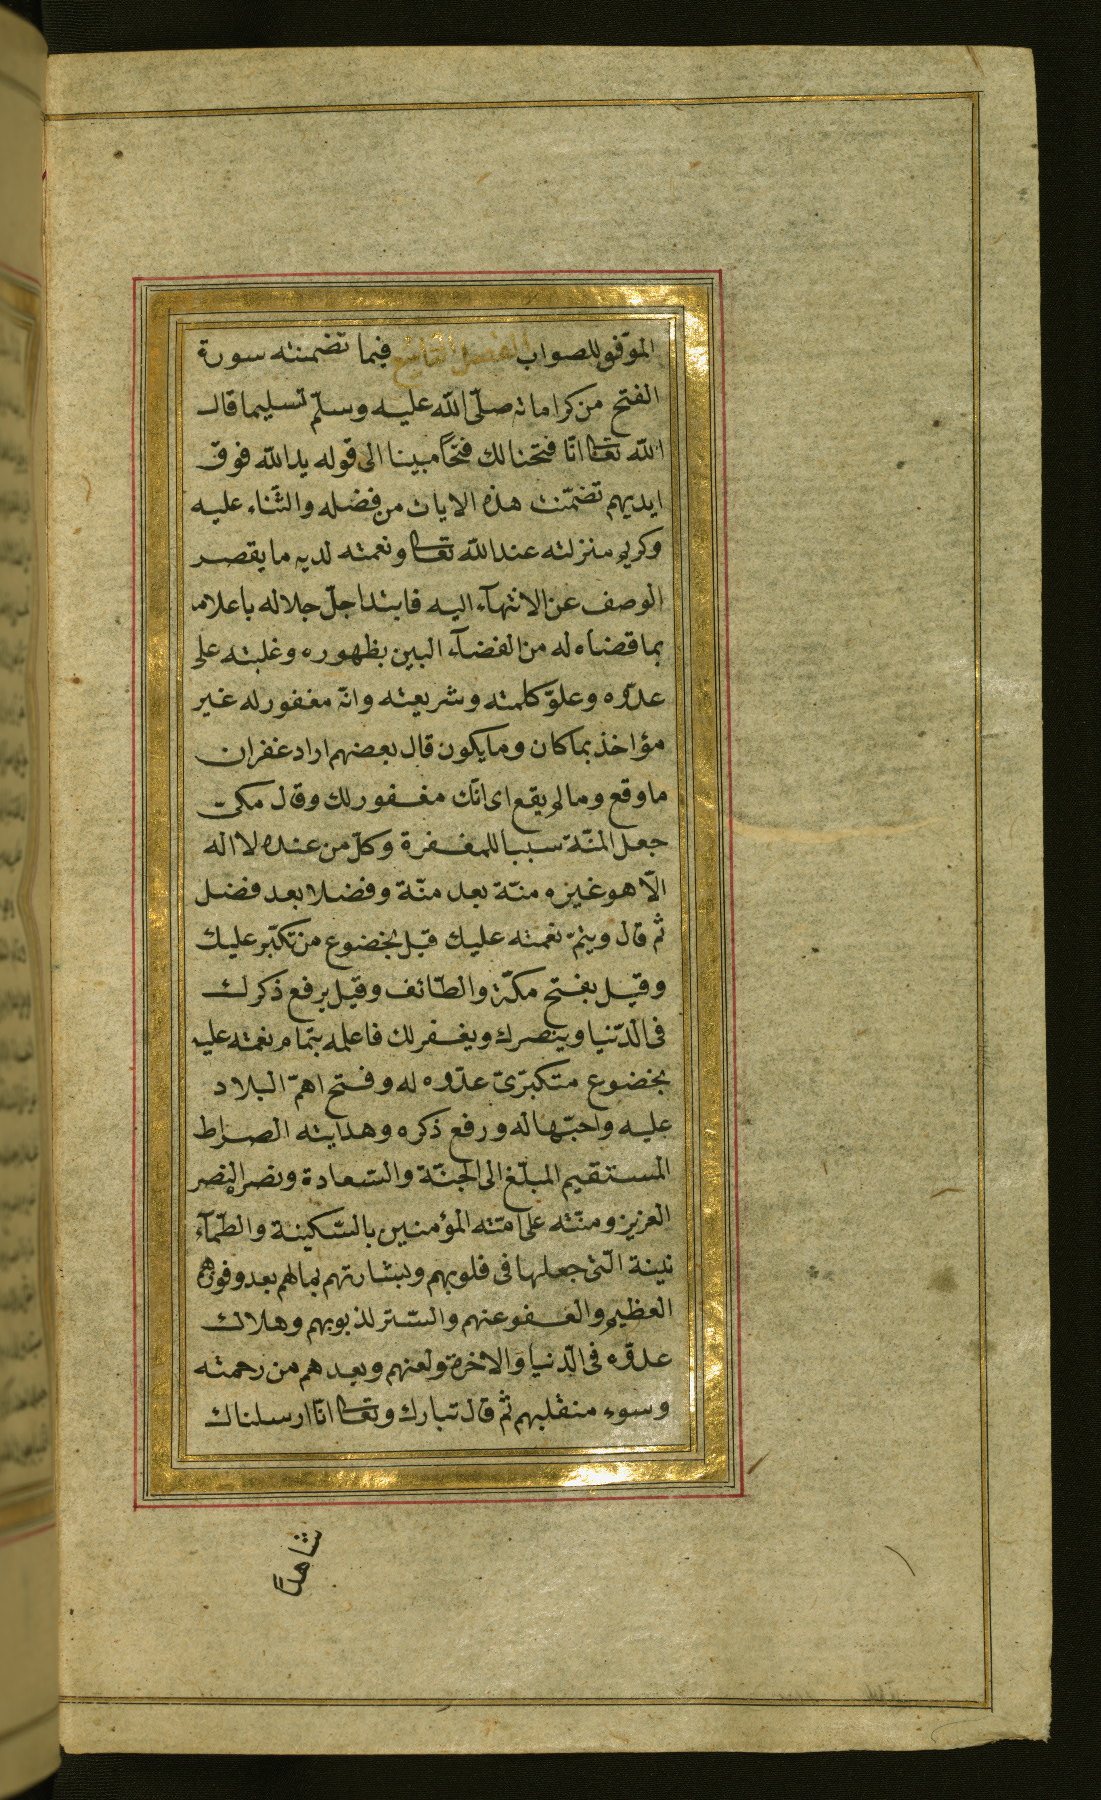 الموفق للصواب الفصل التاسع فيما تضمنته سورة
الفتح من كراماته صلّى الله عليه وسلّم تسليما قال
الله تعا انّا فتحنا لك فتحًا مبينا الى قوله يد الله فوق
ايديهم تضمّنت هذه الايات من فضله والثّناء عليه
وكريم منزلته عند الله تعا ونعمته لديه ما يقصر
الوصف عن الانتهآء اليه فابتدا جلّ جلاله باعلامه
بما قضاه له من القضآء البين بظهوره وغلبته على
عدّوه وعلوّ كلمته وشريعته وانّه مغفور له غير
مؤاخذ بما كان وما يكون قال بعضهم اراد غفران
ما وقع وما لم يقع اى انّك مغفور لك وقال مكىّ
جعل المنّة سببا للمغفرة وكلّ من عنده لا اله
الّا هو غيره منّة بعد منّة وفضلا بعد فضل
ثم قال ويتمّ نعمته عليك قيل بخضوع من تكبّر عليك
وقيل بفتح مكّة والطّائف وقيل يرفع ذكرك
فى الدّنيا وينصرك ويغفر لك فاعلمه بتمام نعمته عليه
بخضوع متكبّرى عدّوه له وفتح اهمّ البلاد
عليه واحبّها له ورفع ذكره وهدايته الصراط
المستقيم المبلّغ الى الجنّة والسّعادة ونصره النصر
العزيز ومنّته على امّته المؤمنين بالسّكينة والطّمآ
نينة الّتى جعلها فى قلوبهم وبشارتهم بمالهم بعد وفوزهم
العظيم والعفو عنهم والسّتر لذنوبهم وهلاك
عدّوه فى الدّنيا والاخرة ولعنهم وبعدهم من رحمته
وسوء منقلبهم ثمّ قال تبارك وتعا انّا ارسلناك
شاهدًا